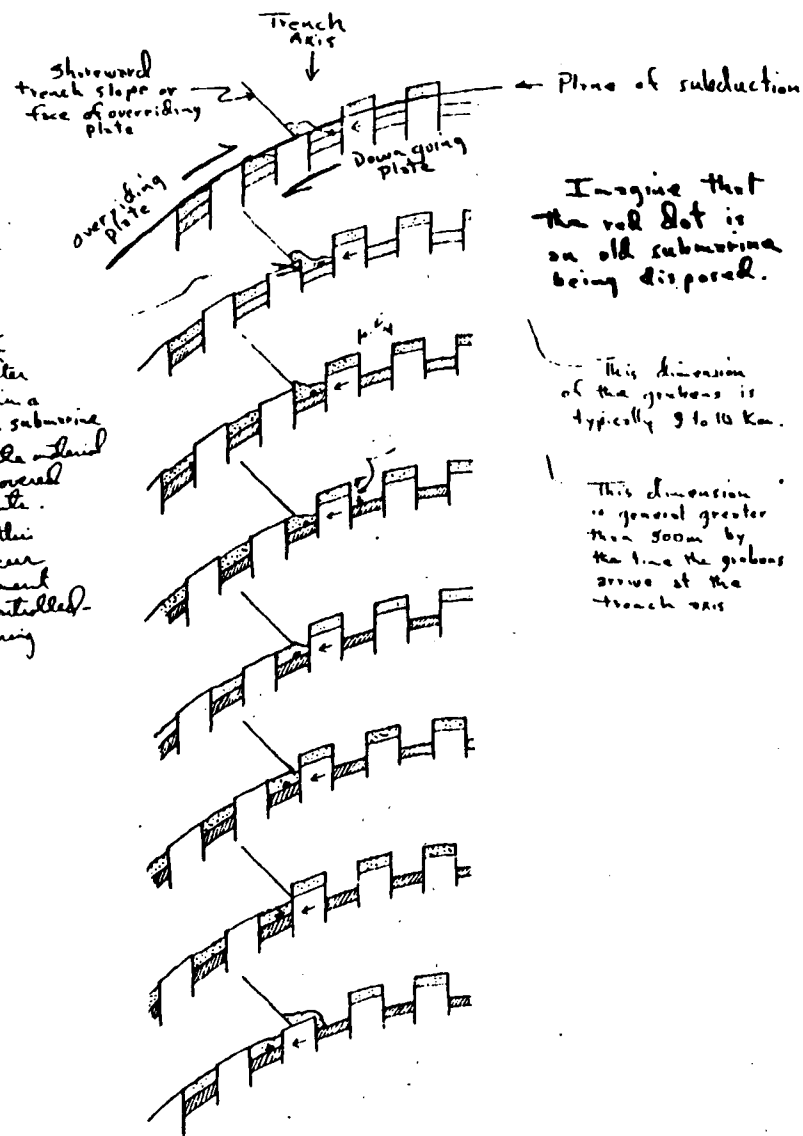 Trench
Axis
Shoreward
trench slope or
face of overriding
plate
Plane of subduction
Down going
plate
overriding
plate
Imagine that
the red dot is
an old submarine
being disposed.
This dimension
of the grabens is
typically to 10 Km.
This dimension
is general greater
than 500m by
the time the grabens
arrive at the
trench axis
in a
submarine
material